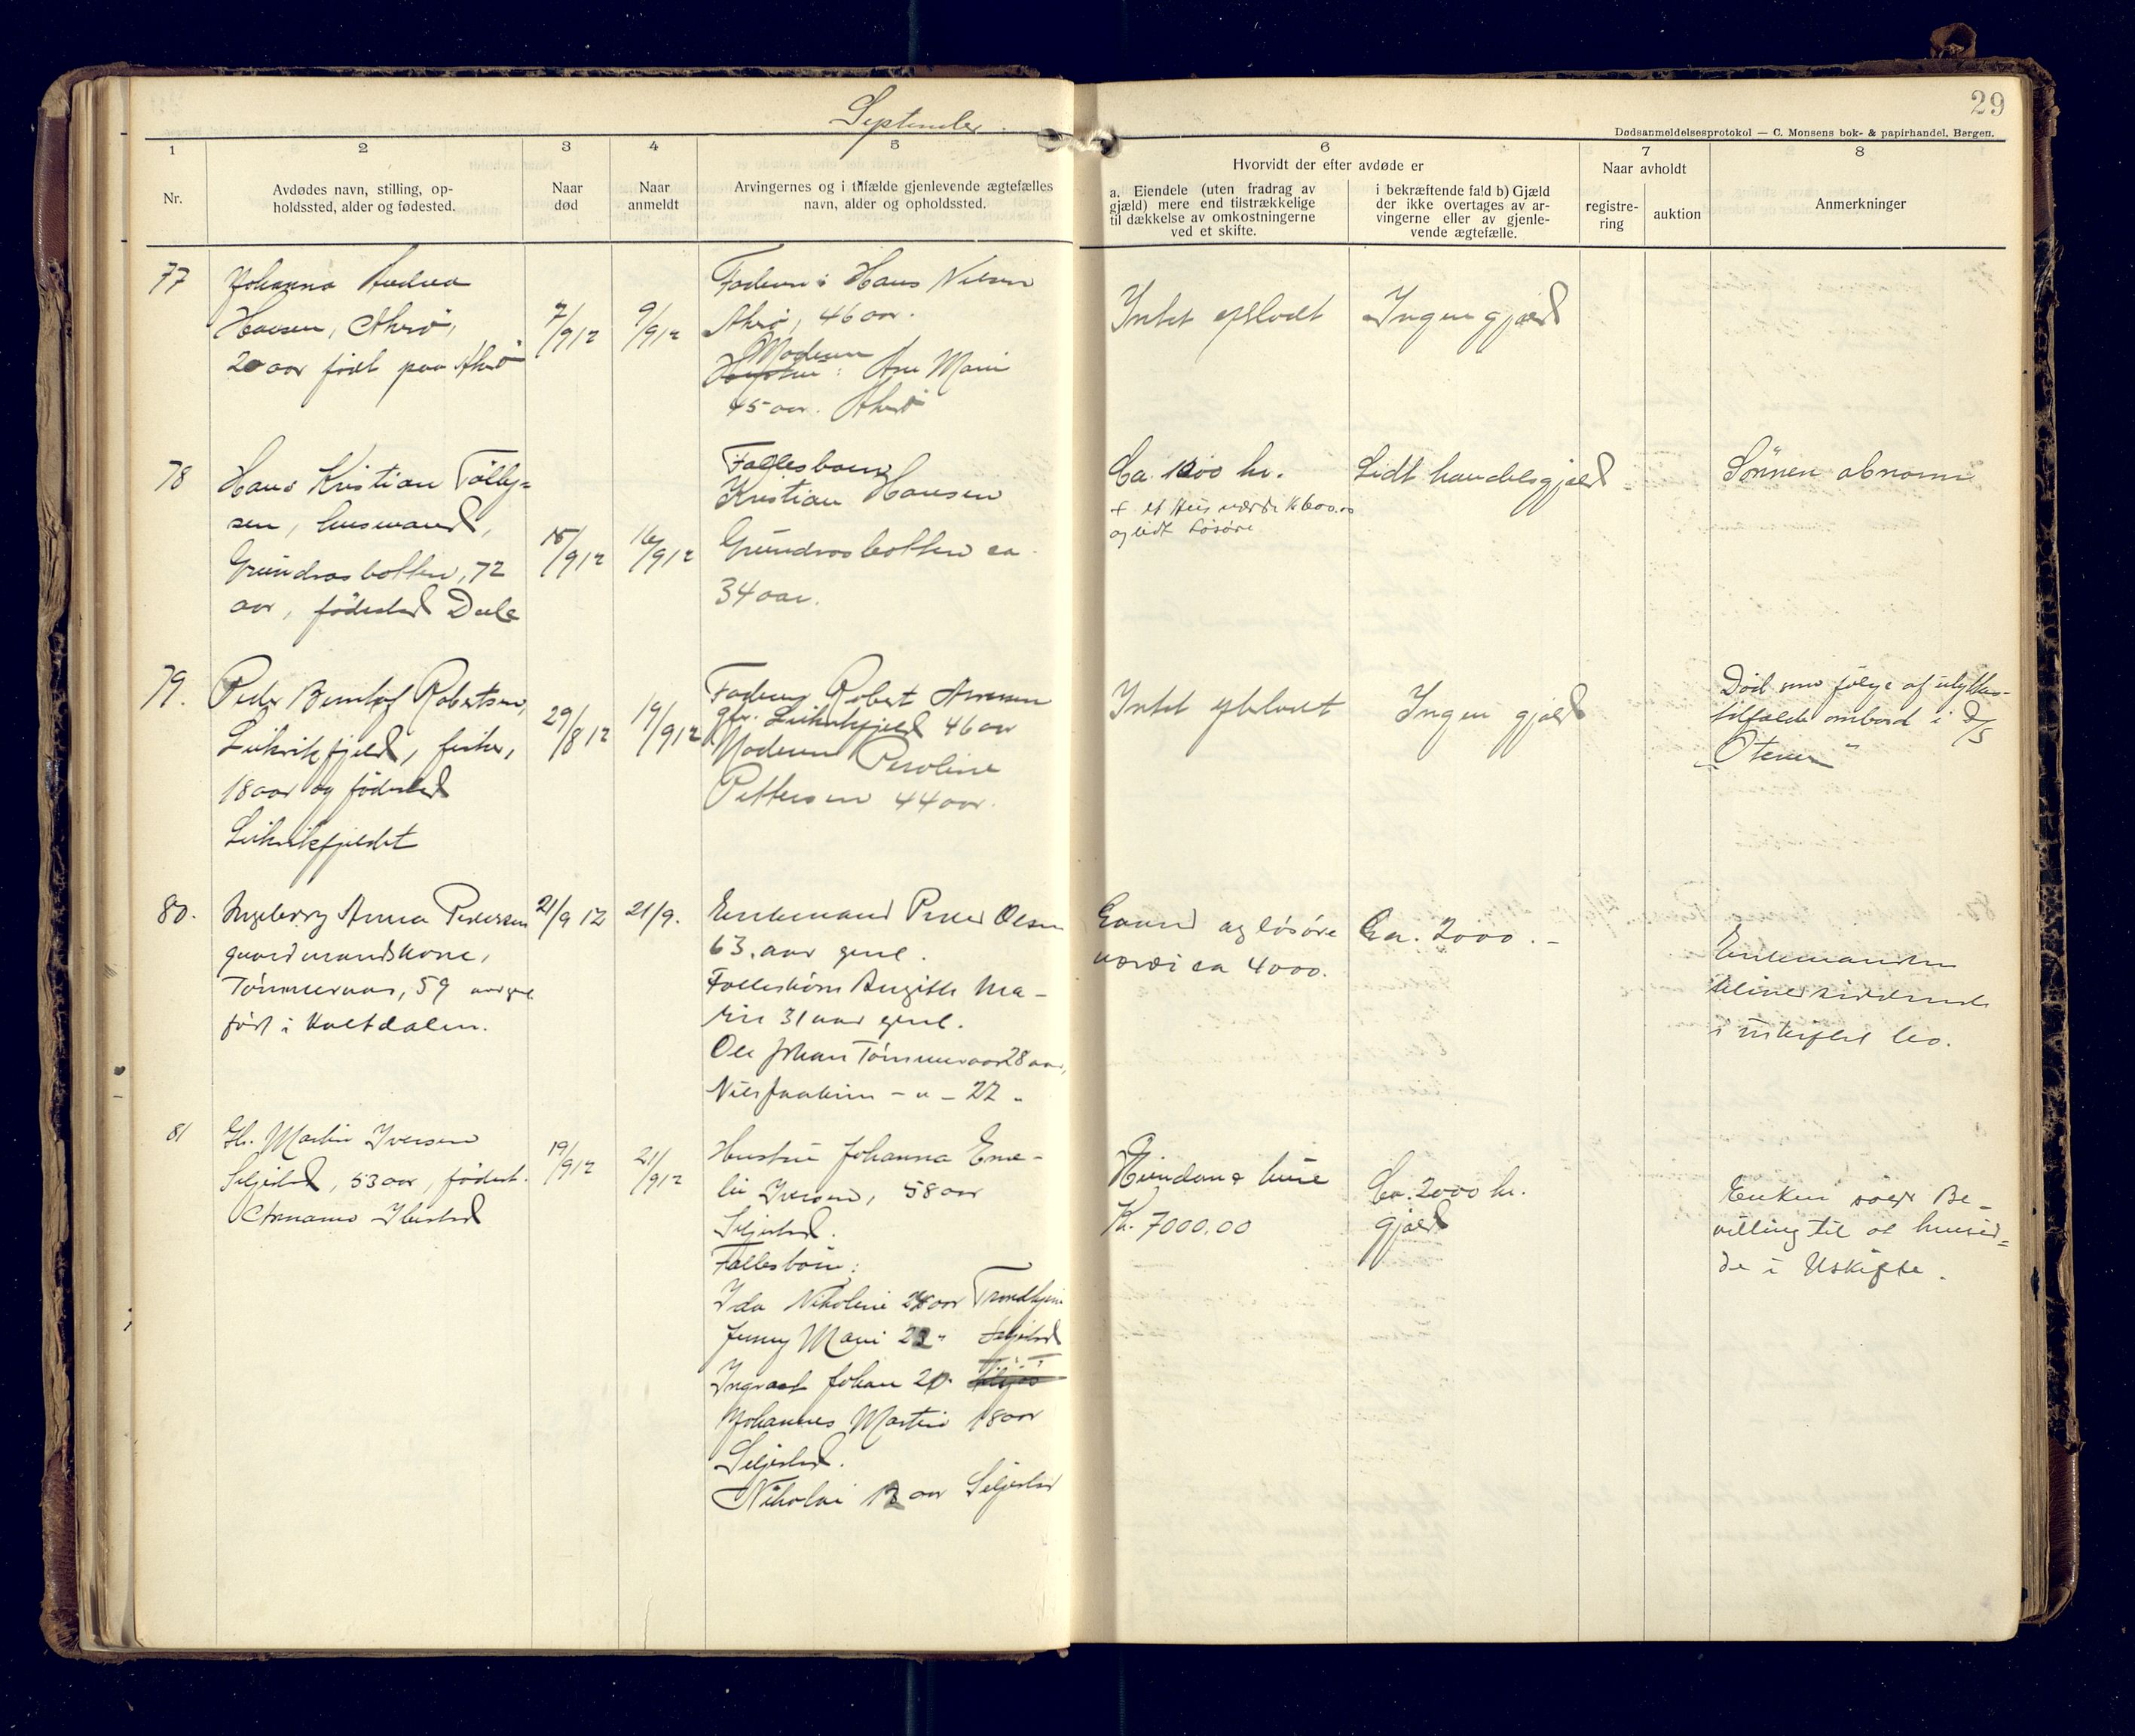 September
29
Dødsanmeldelsesprotokol — C. Monsens bok- & papirhandel, Bergen.
1
2
3
4
5
6
7
8
Nr.
Avdødes navn, stilling, op-
holdssted, alder og fødested.
Naar
død
Naar
anmeldt
Arvingernes og i tilfælde gjenlevende ægtefælles
navn, alder og opholdssted.
Hvorvidt der efter avdøde er
a. Eiendele (uten fradrag av
gjæld) mere end tilstrækkelige
til dækkelse av omkostningerne
ved et skifte.
i bekræftende fald b) Gjæld
der ikke overtages av ar-
vingerne eller av gjenle-
vende ægtefælle.
Naar avholdt
registre-
ring
auktion
Anmerkninger
77
Johanna Andrea
Hansen, Akrø,
20 aar født paa Akrø
7/9 12
9/9 12
Faderen: Hans Nilsen
Akrø, 46 aar.
Moderen
Hustru: Ane Marie
45 aar. Akrø
Intet efterladt
Ingen gjæld
78
Hans Kristian Tolley=
sen, husmand,
72
aar, fødested
15/9 12
16/9 12
Fællesbarn
Kristian Hansen
ca.
34 aar.
Ca. 1200 kr.
+ et Hus værdi K 600.00
og lidt Løsøre
Lidt handelsgjæld
Sønnen abnorm
79.
Peder Robertsen,
fisker,
18 aar og fødested
29/8 12
19/9 12
Faderen Robert
46 aar
Moderen Peroline
Pettersen 44 aar.
Intet efterladt
Ingen gjæld
Død som følge af ulykkes-
tilfælde ombord i D/S
„Oteren"
80.
Ingeborg Anna Pedersen
gaardmandskone,
Tømmernes, 59 aar gml.
født i
21/9 12
21/9.
Enkemand Peder Olsen
63. aar gml.
Fællesbørn Birgitte Ma-
rie 31 aar gml.
Ole Johan Tømmernes 28 aar,
Nils Joakim - " - 22 "
Gaard og løsøre
værdi ca 4000.
Ca. 2000.-
Enkemanden
bliver siddende
i uskiftet bo.
81
Gb. Martin Iversen
Seljestad, 53 aar, fødest.
Ibestad
19/9 12
21/9 12
Hustru Johanna Eme-
lie Iversen, 58 aar
Seljestad.
Fællesbørn:
Ida Nikoline 24 aar Trondhjem
Jenny Marie 22 " Seljestad
Ingvart Johan 20
Johannes Martin 18 aar
Seljestad.
Nikolai 12 aar Seljestad
Eiendom & huse
K. 7000.00
Ca. 2000 kr.
gjæld
Enken søger Be-
villing til at hensid=
de i Uskifte.